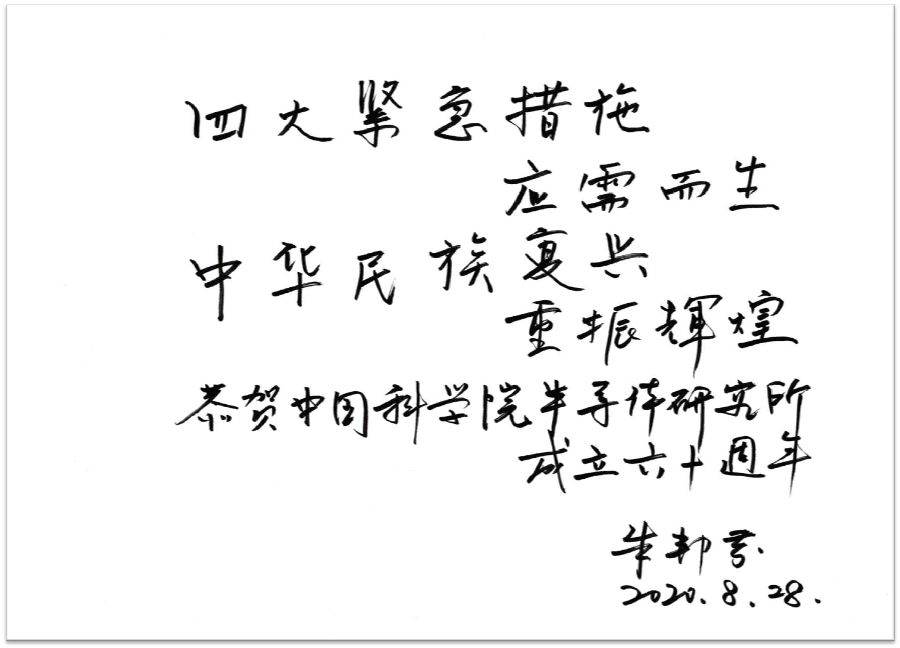 四大紧急措施
应需而生
中华民族复兴
重振輝煌
恭贺中国科学院半导体研究所
成立六十週年
朱邦芬
2020.8.28.